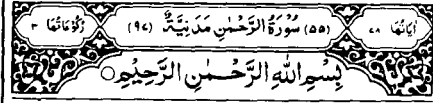 اٰیَاتُهَا ٧٨ (٥٥) سُوْرَةُ الرَّحْمٰنِ مَدَنِیَّةٌ (٩٧) رُكُوْعَاتُهَا ٣
بِسْمِ اللّٰهِ الرَّحْمٰنِ الرَّحِیْمِ